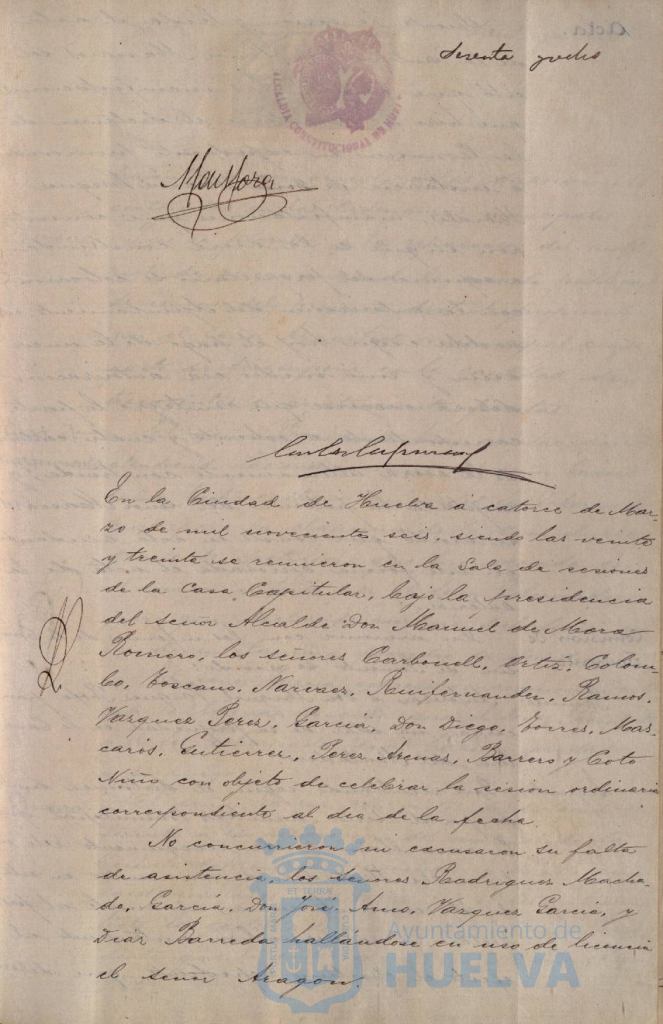 Acta.
Sesenta y ocho
ALCALDIA CONSTITUCIONAL DE HUELVA
M. de Mora
En la Ciudad de Huelva á catorce de Mar-
zo de mil novecientos seis, siendo las veinte
y treinta se reunieron en la Sala de sesiones
de la Casa Capitular, bajo la presidencia
del señor Alcalde Don Manuel de Mora
Romero, los señores Carbonell, Ortiz, Colom-
bo, Toscano, Narvaez, Ruifernandez, Ramos,
Vazquez Perez, García, Don Diego, Torres, Mas-
carós, Gutierrez, Perez Arenas, Barrero y Coto
Niño con objeto de celebrar la sesión ordinaria
correspondiente al dia de la fecha.
No concurrieron ni excusaron su falta
de asistencia, los señores Rodriguez Macha-
do, García, Don José, Amo, Vazquez Garcia, y
Diaz Barreda hallándose en uso de licencia
el señor Aragón.
Ayuntamiento de
HUELVA